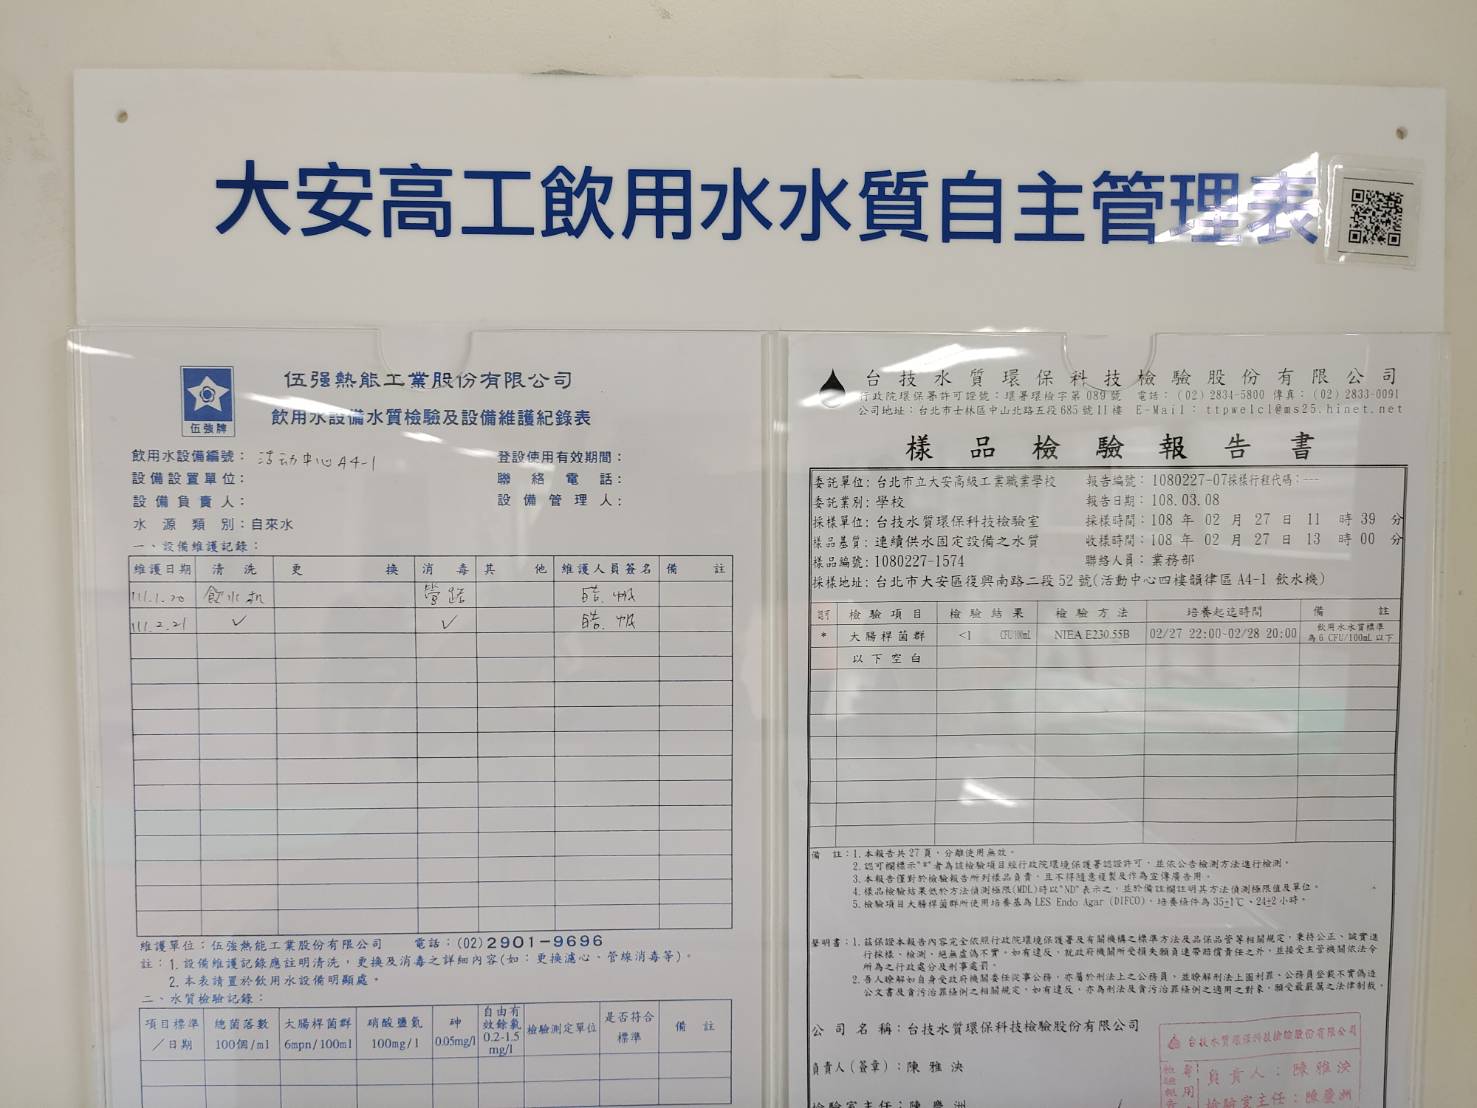 大安高工飲用水水質自主管理表
伍強牌
伍强熱能工業股份有限公司
飲用水設備水質檢驗及設備維護紀錄表
飲用水設備編號：活动中心A4-1
登設使用有效期間：
設備設置單位：
聯絡電話：
設備負責人：
設備管理人：
水源類別：自來水
一、設備維護記錄：
維護日期 清洗 更換 消毒 其他 維護人員簽名 備註
111.1.20 飲水机 管路
111.2.21 ✓ ✓
維護單位：伍強熱能工業股份有限公司 電話：(02)2901-9696
註：1.設備維護記錄應註明清洗，更換及消毒之詳細內容(如：更換濾心、管線消毒等)。
2.本表請置於飲用水設備明顯處。
二、水質檢驗記錄：
項目標準／日期 總菌落數100個/ml 大腸桿菌群6mpn/100ml 硝酸鹽氮100mg/l 砷0.05mg/l 自由有效餘氯0.2-1.5mg/l 檢驗測定單位 是否符合標準 備註
台技水質環保科技檢驗股份有限公司
行政院環保署許可證號：環署環檢字第089號 電話：(02)2831-5800 傳真：(02)2833-0091
公司地址：台北市士林區中山北路五段685號11樓 E-Mail：ttpwelcl@ms25.hinet.net
樣品檢驗報告書
委託單位：台北市立大安高級工業職業學校 報告編號：1080227-07採樣行程代碼：---
委託業別：學校 報告日期：108.03.08
採樣單位：台技水質環保科技檢驗室 採樣時間：108 年 02 月 27 日 11 時 39 分
樣品基質：連續供水固定設備之水質 收樣時間：108 年 02 月 27 日 13 時 00 分
樣品編號：1080227-1574 聯絡人員：業務部
採樣地址：台北市大安區復興南路二段52號(活動中心四樓韻律區A4-1 飲水機)
認可 檢驗項目 檢驗結果 檢驗方法 培養起迄時間 備註
* 大腸桿菌群 <1 CFU/100mL NIEA E230.55B 02/27 22:00-02/28 20:00 飲用水水質標準為6 CFU/100mL以下
以下空白
備註：1.本報告共27頁，分離使用無效。
2.認可欄標示"*"者為該檢驗項目經行政院環境保護署認證許可，並依公告檢測方法進行檢測。
3.本報告僅對於檢驗報告所列樣品負責，且不得隨意複製及作為宣傳廣告用。
4.樣品檢驗結果低於方法偵測極限(MDL)時以"ND"表示之，並於備註欄註明其方法偵測極限值及單位。
5.檢驗項目大腸桿菌群所使用培養基為LES Endo Agar (DIFCO)，培養條件為35±1℃、24±2小時。
聲明書：1.茲保證本報告內容完全依照行政院環境保護署及有關機構之標準方法及品保品管等相關規定，秉持公正、誠實進
行採樣、檢測。絕無虛偽不實。如有違反，就政府機關所受損失願負連帶賠償責任之外，並接受主管機關依法令
所為之行政處分及刑事處罰。
2.吾人瞭解如自身受政府機關委任從事公務，亦屬於刑法上之公務員，並瞭解刑法上圖利罪、公務員登載不實偽造
公文書及貪污治罪條例之相關規定，如有違反，亦為刑法及貪污治罪條例之適用之對象，願受最嚴厲之法律制裁。
公司名稱：台技水質環保科技檢驗股份有限公司
負責人(簽章)：陳雅泱
檢驗室主任：陳慶洲
台技水質環保科技檢驗股份有限公司
負責人：陳雅泱
檢驗室主任：陳慶洲